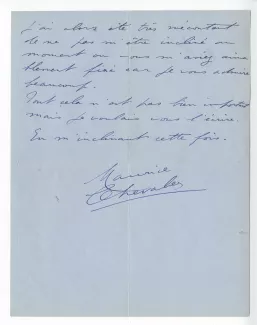 J'ai alors été très mécontent
de ne pas m'être incliné au
moment où vous m'aviez aima
blement fixé car je vous admire
beaucoup.
Tout cela n'est pas bien important
mais je voulais vous l'écrire.
En m'inclinant cette fois.
Maurice
Chevalier